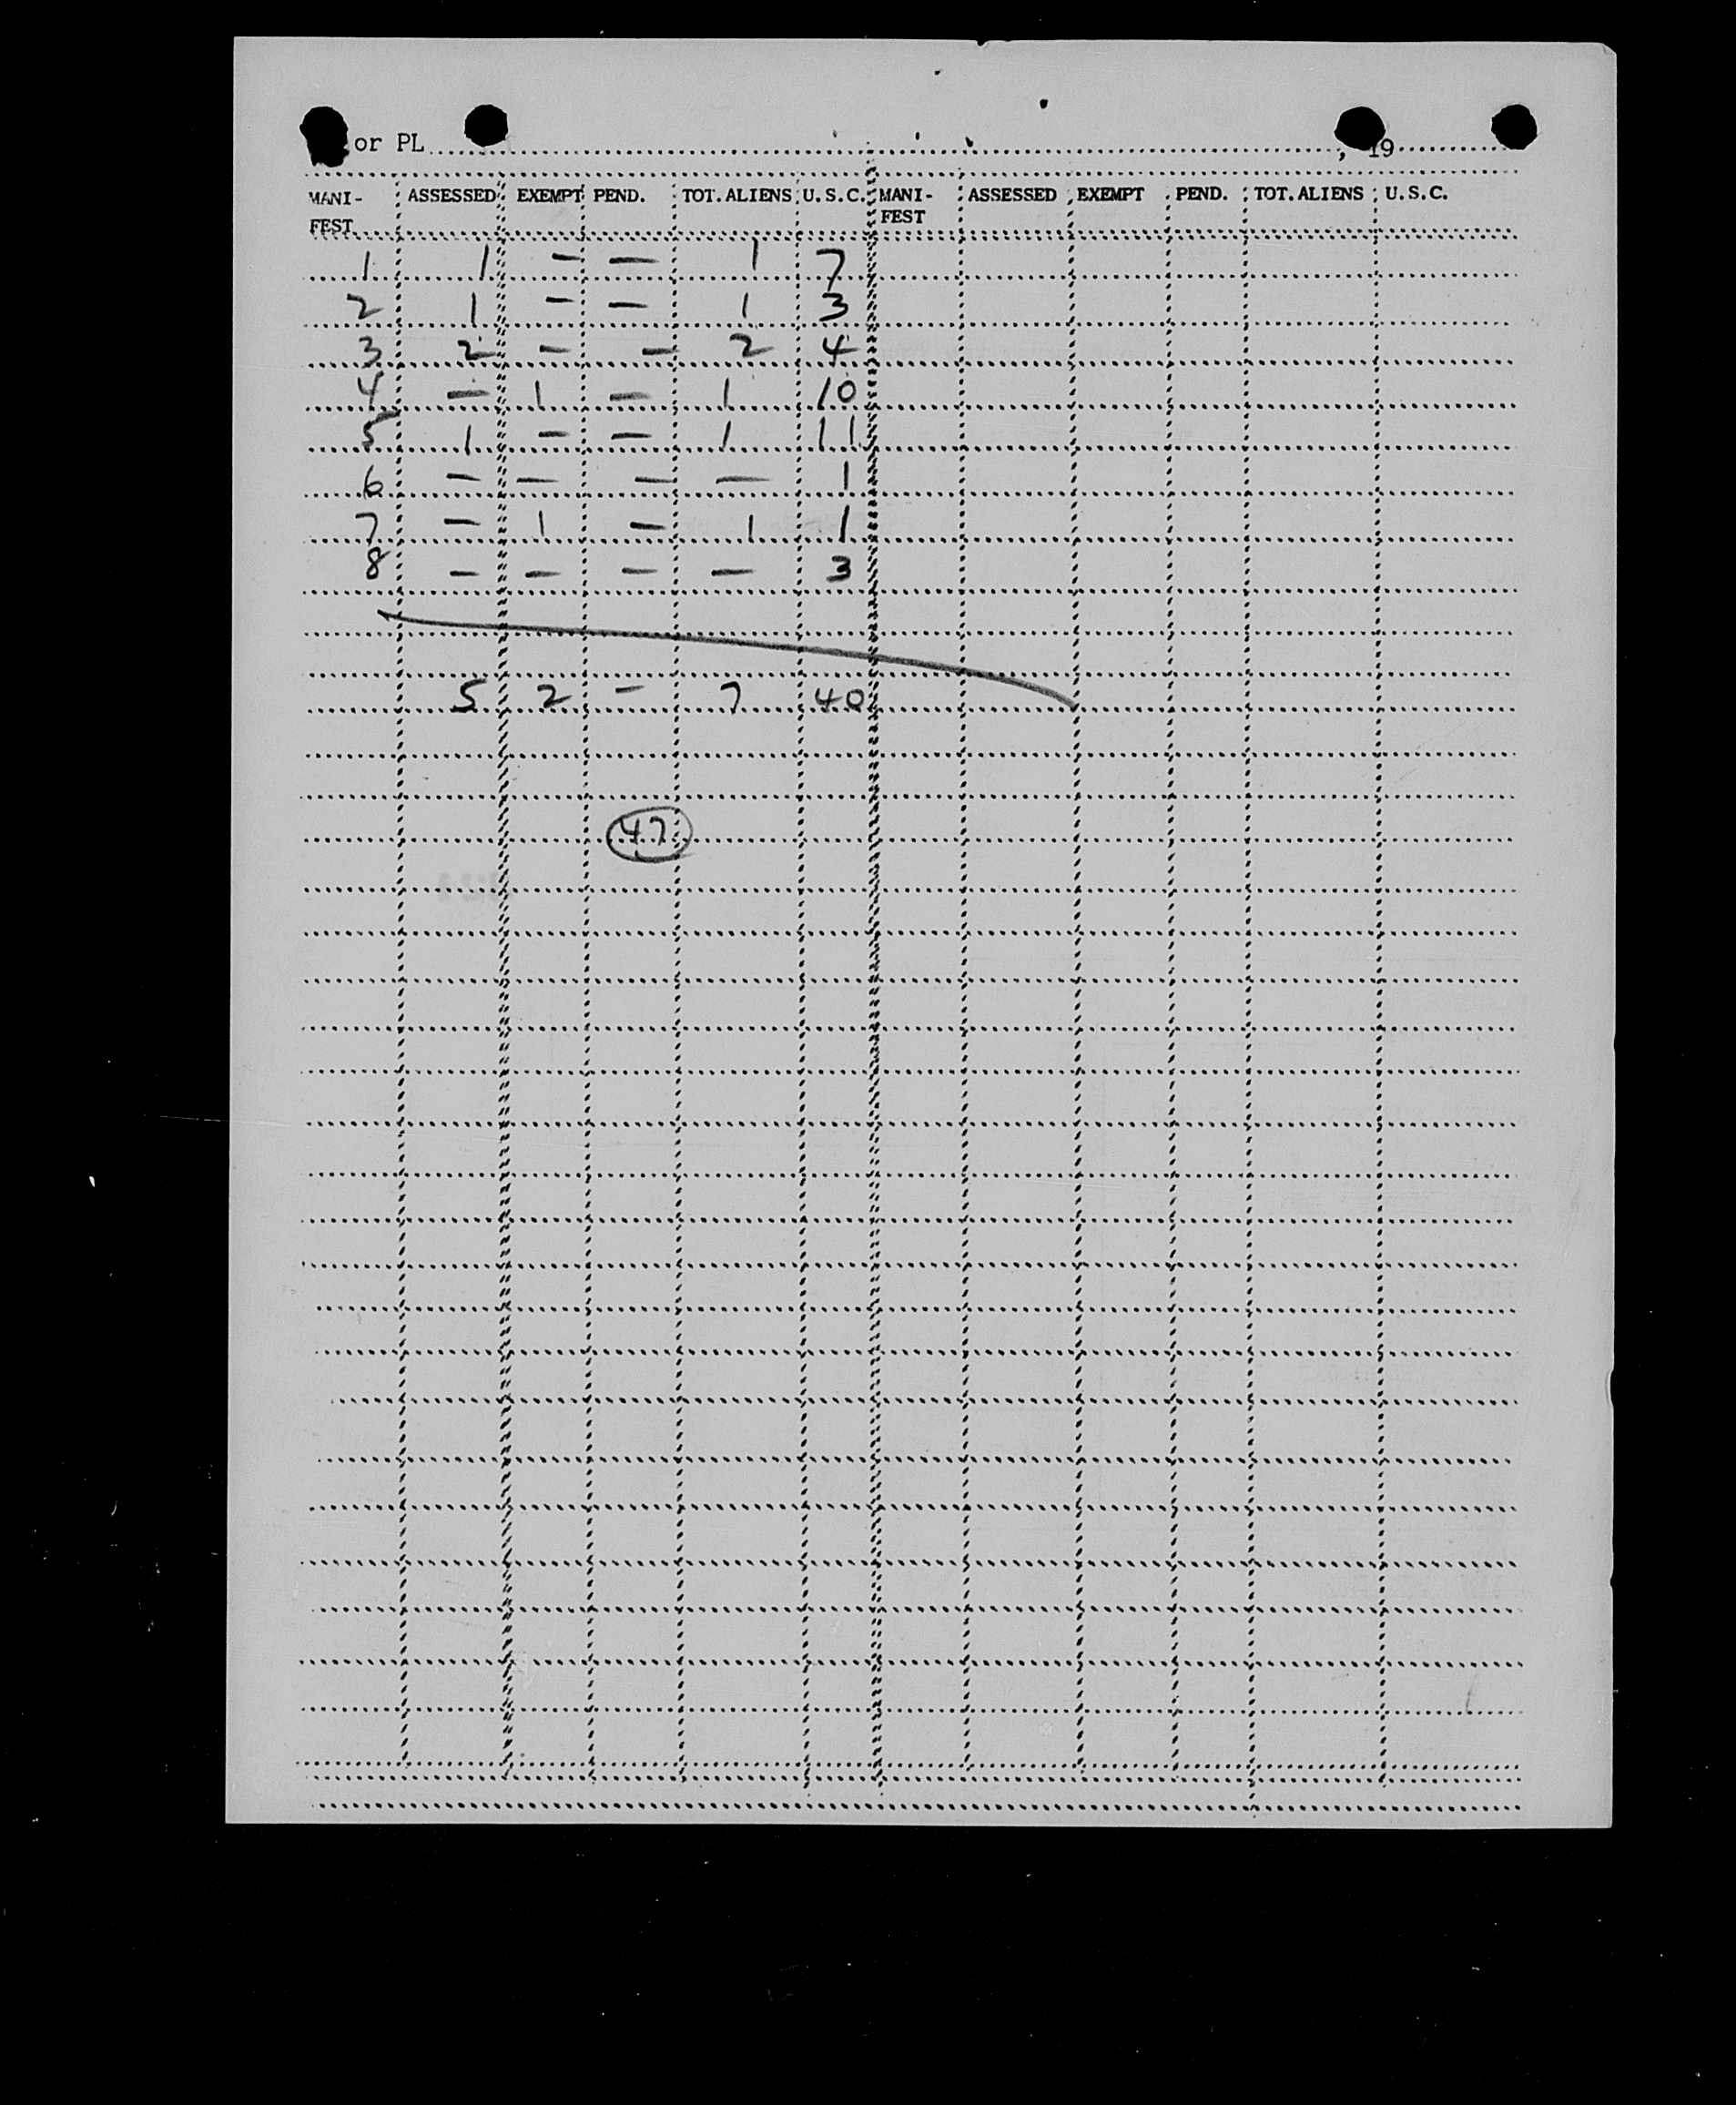 or PL , 19
MANI- ASSESSED EXEMPT PEND. TOT. ALIENS U.S.C. MANI- ASSESSED EXEMPT PEND. TOT. ALIENS U.S.C.
FEST FEST
1 1 - - 1 7
2 1 - - 1 3
3 2 - - 2 4
4 - 1 - 1 10
5 1 - - 1 11
6 - - - - 1
7 - 1 - 1 1
8 - - - - 3
5 2 - 7 40
47